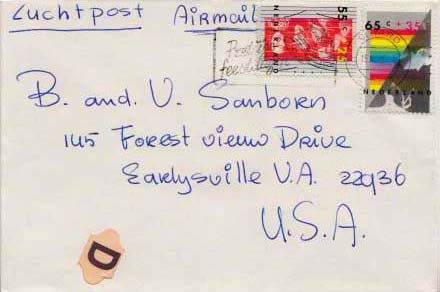 Luchtpost Airmail
55c+25
NEDERLAND
65c+35c
NEDERLAND
B. and V. Sanborn
145 Forest view Drive
Earlysville V.A. 22936
U.S.A.
D